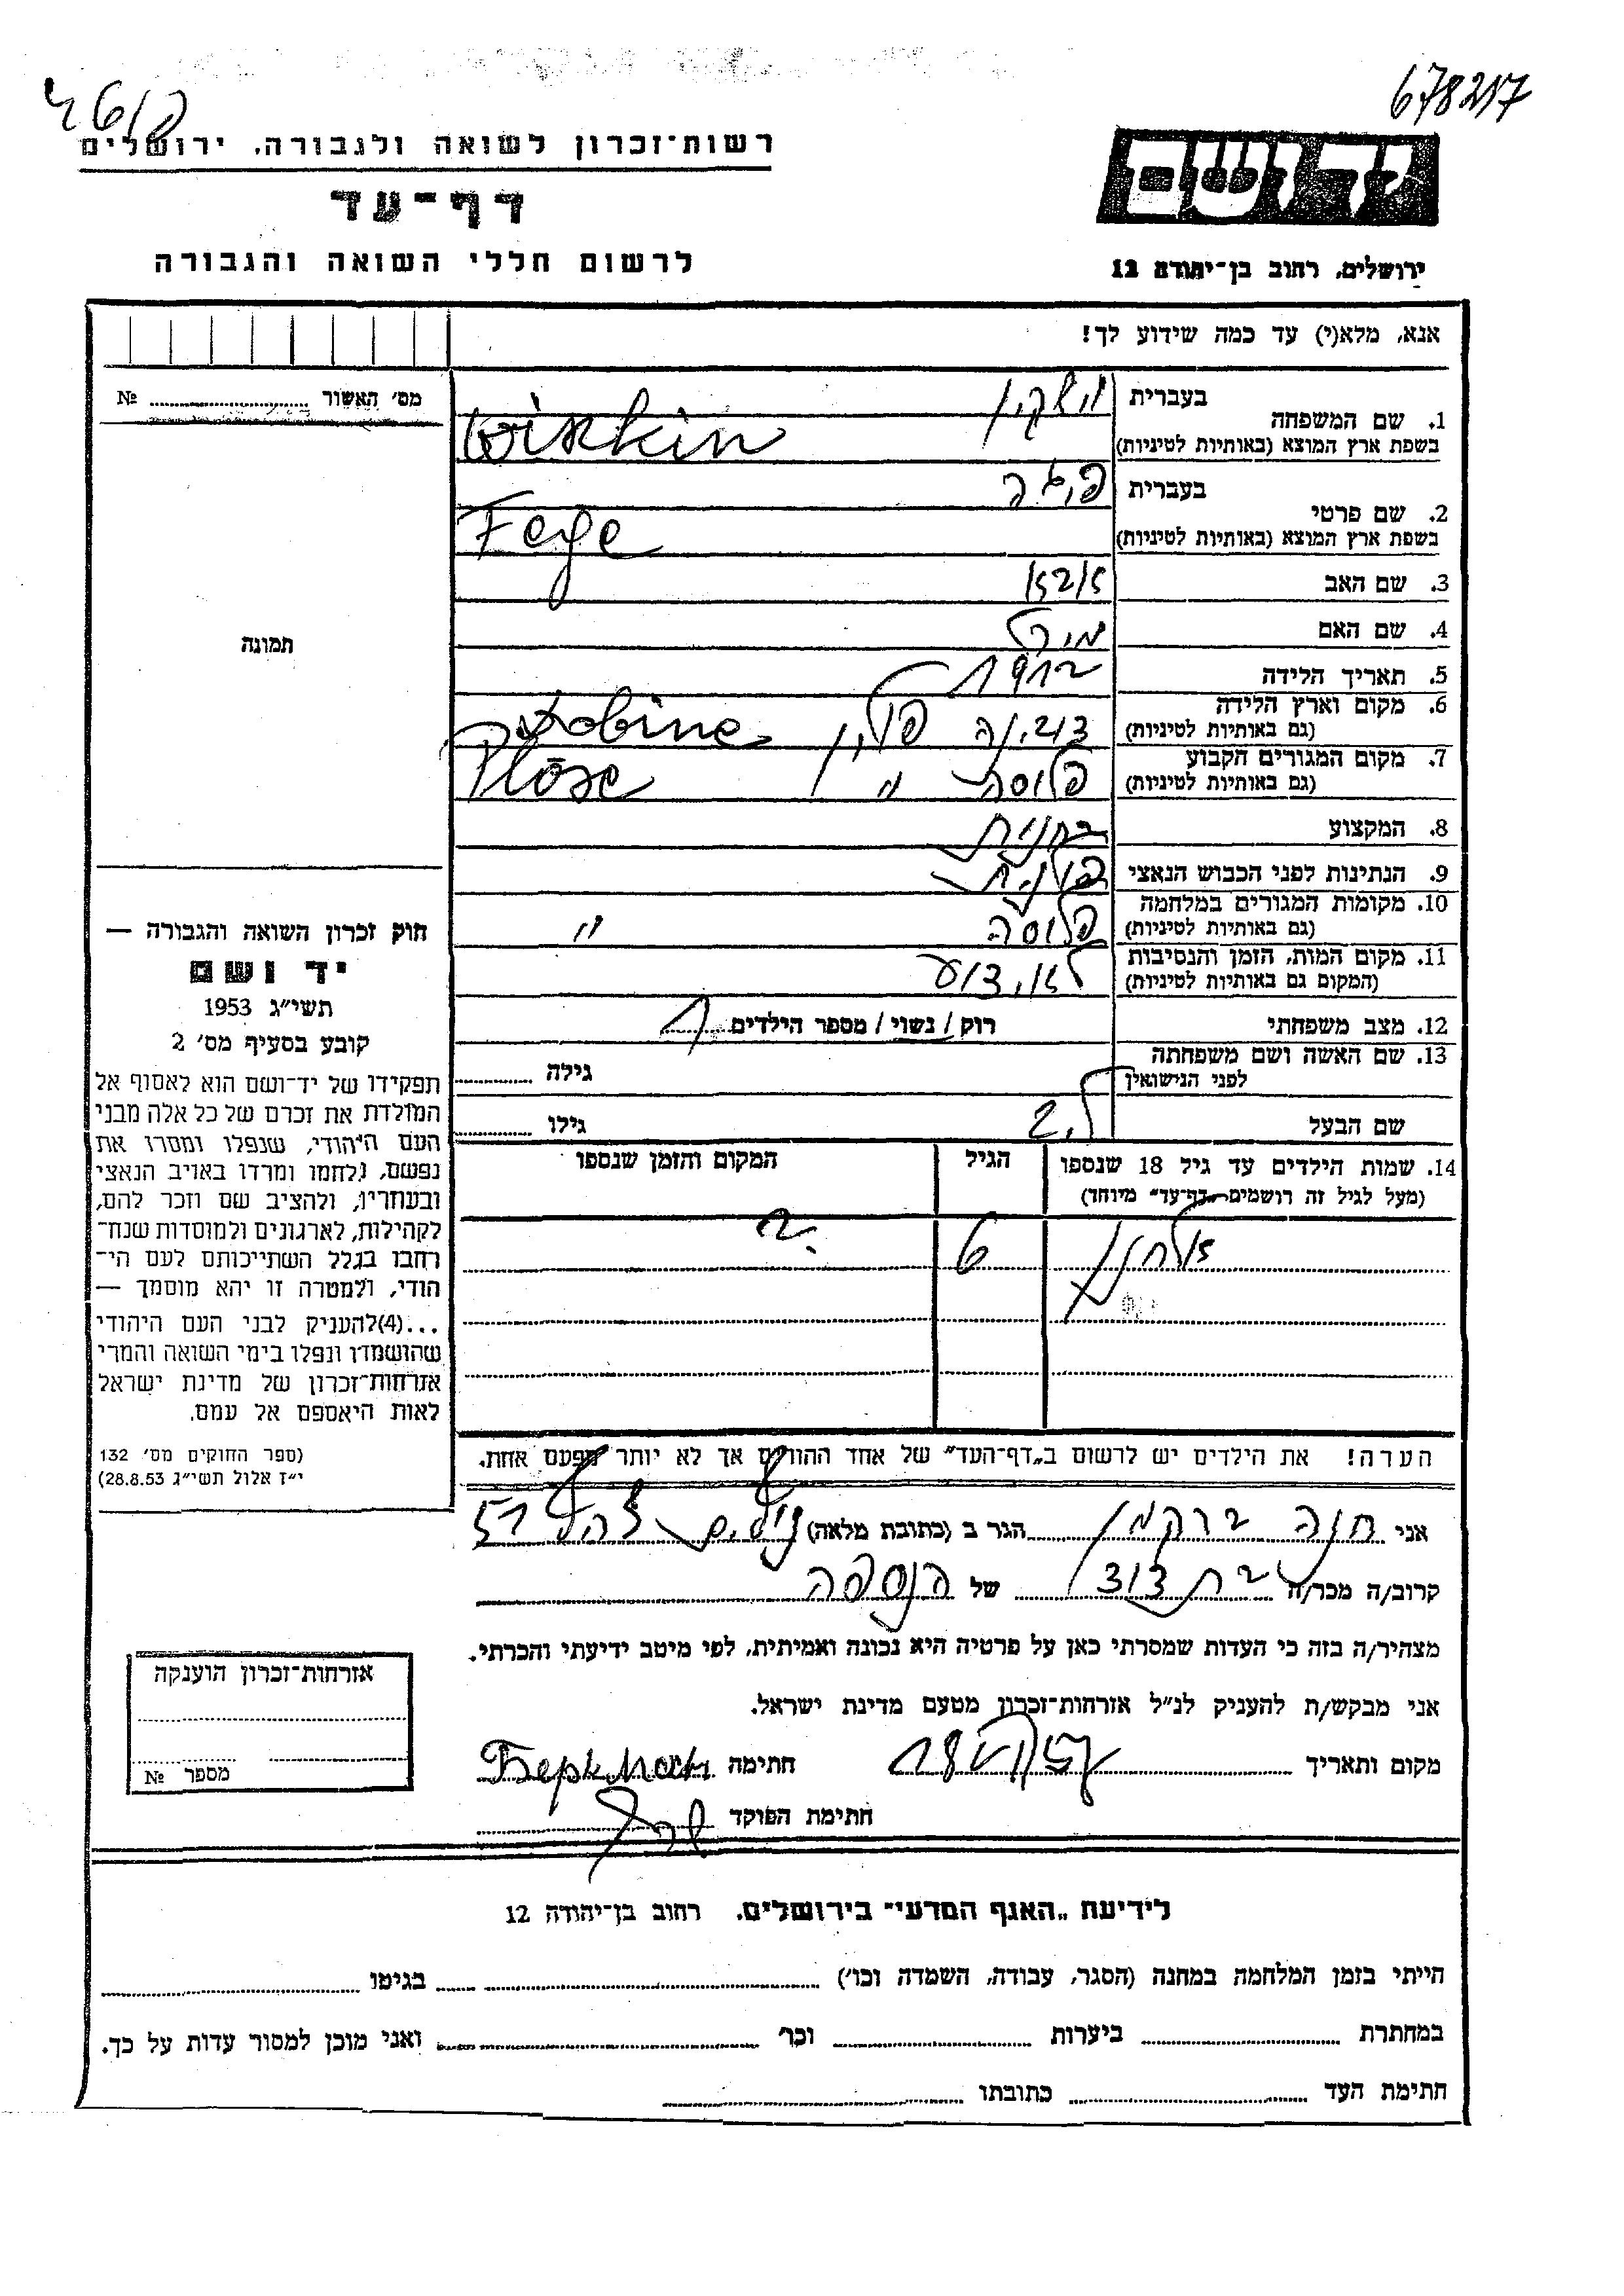 678217
רשות־זכרון לשואה ולגבורה, ירושלים
יד ושם
דף־עד
לרשום חללי השואה והגבורה
ירושלים, רחוב בן־יהודה 12
אנא, מלא(י) עד כמה שידוע לך!
מס׳ האשור №
1. שם המשפחה
בעברית
בשפת ארץ המוצא (באותיות לטיניות)
Wiskin
2. שם פרטי
בעברית
בשפת ארץ המוצא (באותיות לטיניות)
Feye
3. שם האב
4. שם האם
5. תאריך הלידה 1912
6. מקום וארץ הלידה
(גם באותיות לטיניות)
פולין Dobine
7. מקום המגורים הקבוע
(גם באותיות לטיניות)
פלוסה " Plōse
8. המקצוע
9. הנתינות לפני הכבוש הנאצי פולנית
10. מקומות המגורים במלחמה
(גם באותיות לטיניות)
פלוסה "
11. מקום המות, הזמן והנסיבות
(המקום גם באותיות לטיניות)
לא ידוע
12. מצב משפחתי רוק / נשוי / מספר הילדים 1
13. שם האשה ושם משפחתה
לפני הנישואין
גילה
שם הבעל
גילו
14. שמות הילדים עד גיל 18 שנספו
(מעל לגיל זה רושמים "דף־עד" מיוחד)
הגיל
המקום והזמן שנספו
6 ?
הערה! את הילדים יש לרשום ב„דף־העד״ של אחד ההורים אך לא יותר מפעם אחת.
אני חנה ברקמן הגר ב (כתובת מלאה)
קרוב/ה מכר/ה בת דוד של הנספה
מצהיר/ה בזה כי העדות שמסרתי כאן על פרטיה היא נכונה ואמיתית, לפי מיטב ידיעתי והכרתי.
אני מבקש/ת להעניק לנ״ל אזרחות־זכרון מטעם מדינת ישראל.
מקום ותאריך
חתימה Беркман
חתימת הפוקד
תמונה
חוק זכרון השואה והגבורה —
יד ושם
תשי״ג 1953
קובע בסעיף מס׳ 2
תפקידו של יד־ושם הוא לאסוף אל
המולדת את זכרם של כל אלה מבני
העם היהודי, שנפלו ומסרו את
נפשם, נלחמו ומרדו באויב הנאצי
ובעוזריו, ולהציב שם וזכר להם,
לקהילות, לארגונים ולמוסדות שנח־
רחבו בגלל השתייכותם לעם הי־
הודי, ולמטרה זו יהא מוסמך —
...(4)להעניק לבני העם היהודי
שהושמדו ונפלו בימי השואה והמרי
אזרחות־זכרון של מדינת ישראל
לאות היאספם אל עמם.
(ספר החוקים מס׳ 132
י״ז אלול תשי״ג 28.8.53)
אזרחות־זכרון הוענקה
מספר №
לידיעת „האגף המדעי״ בירושלים, רחוב בן־יהודה 12
הייתי בזמן המלחמה במחנה (הסגר, עבודה, השמדה וכו׳) בגיטו
במחתרת ביערות וכו׳ ואני מוכן למסור עדות על כך.
חתימת העד כתובתו